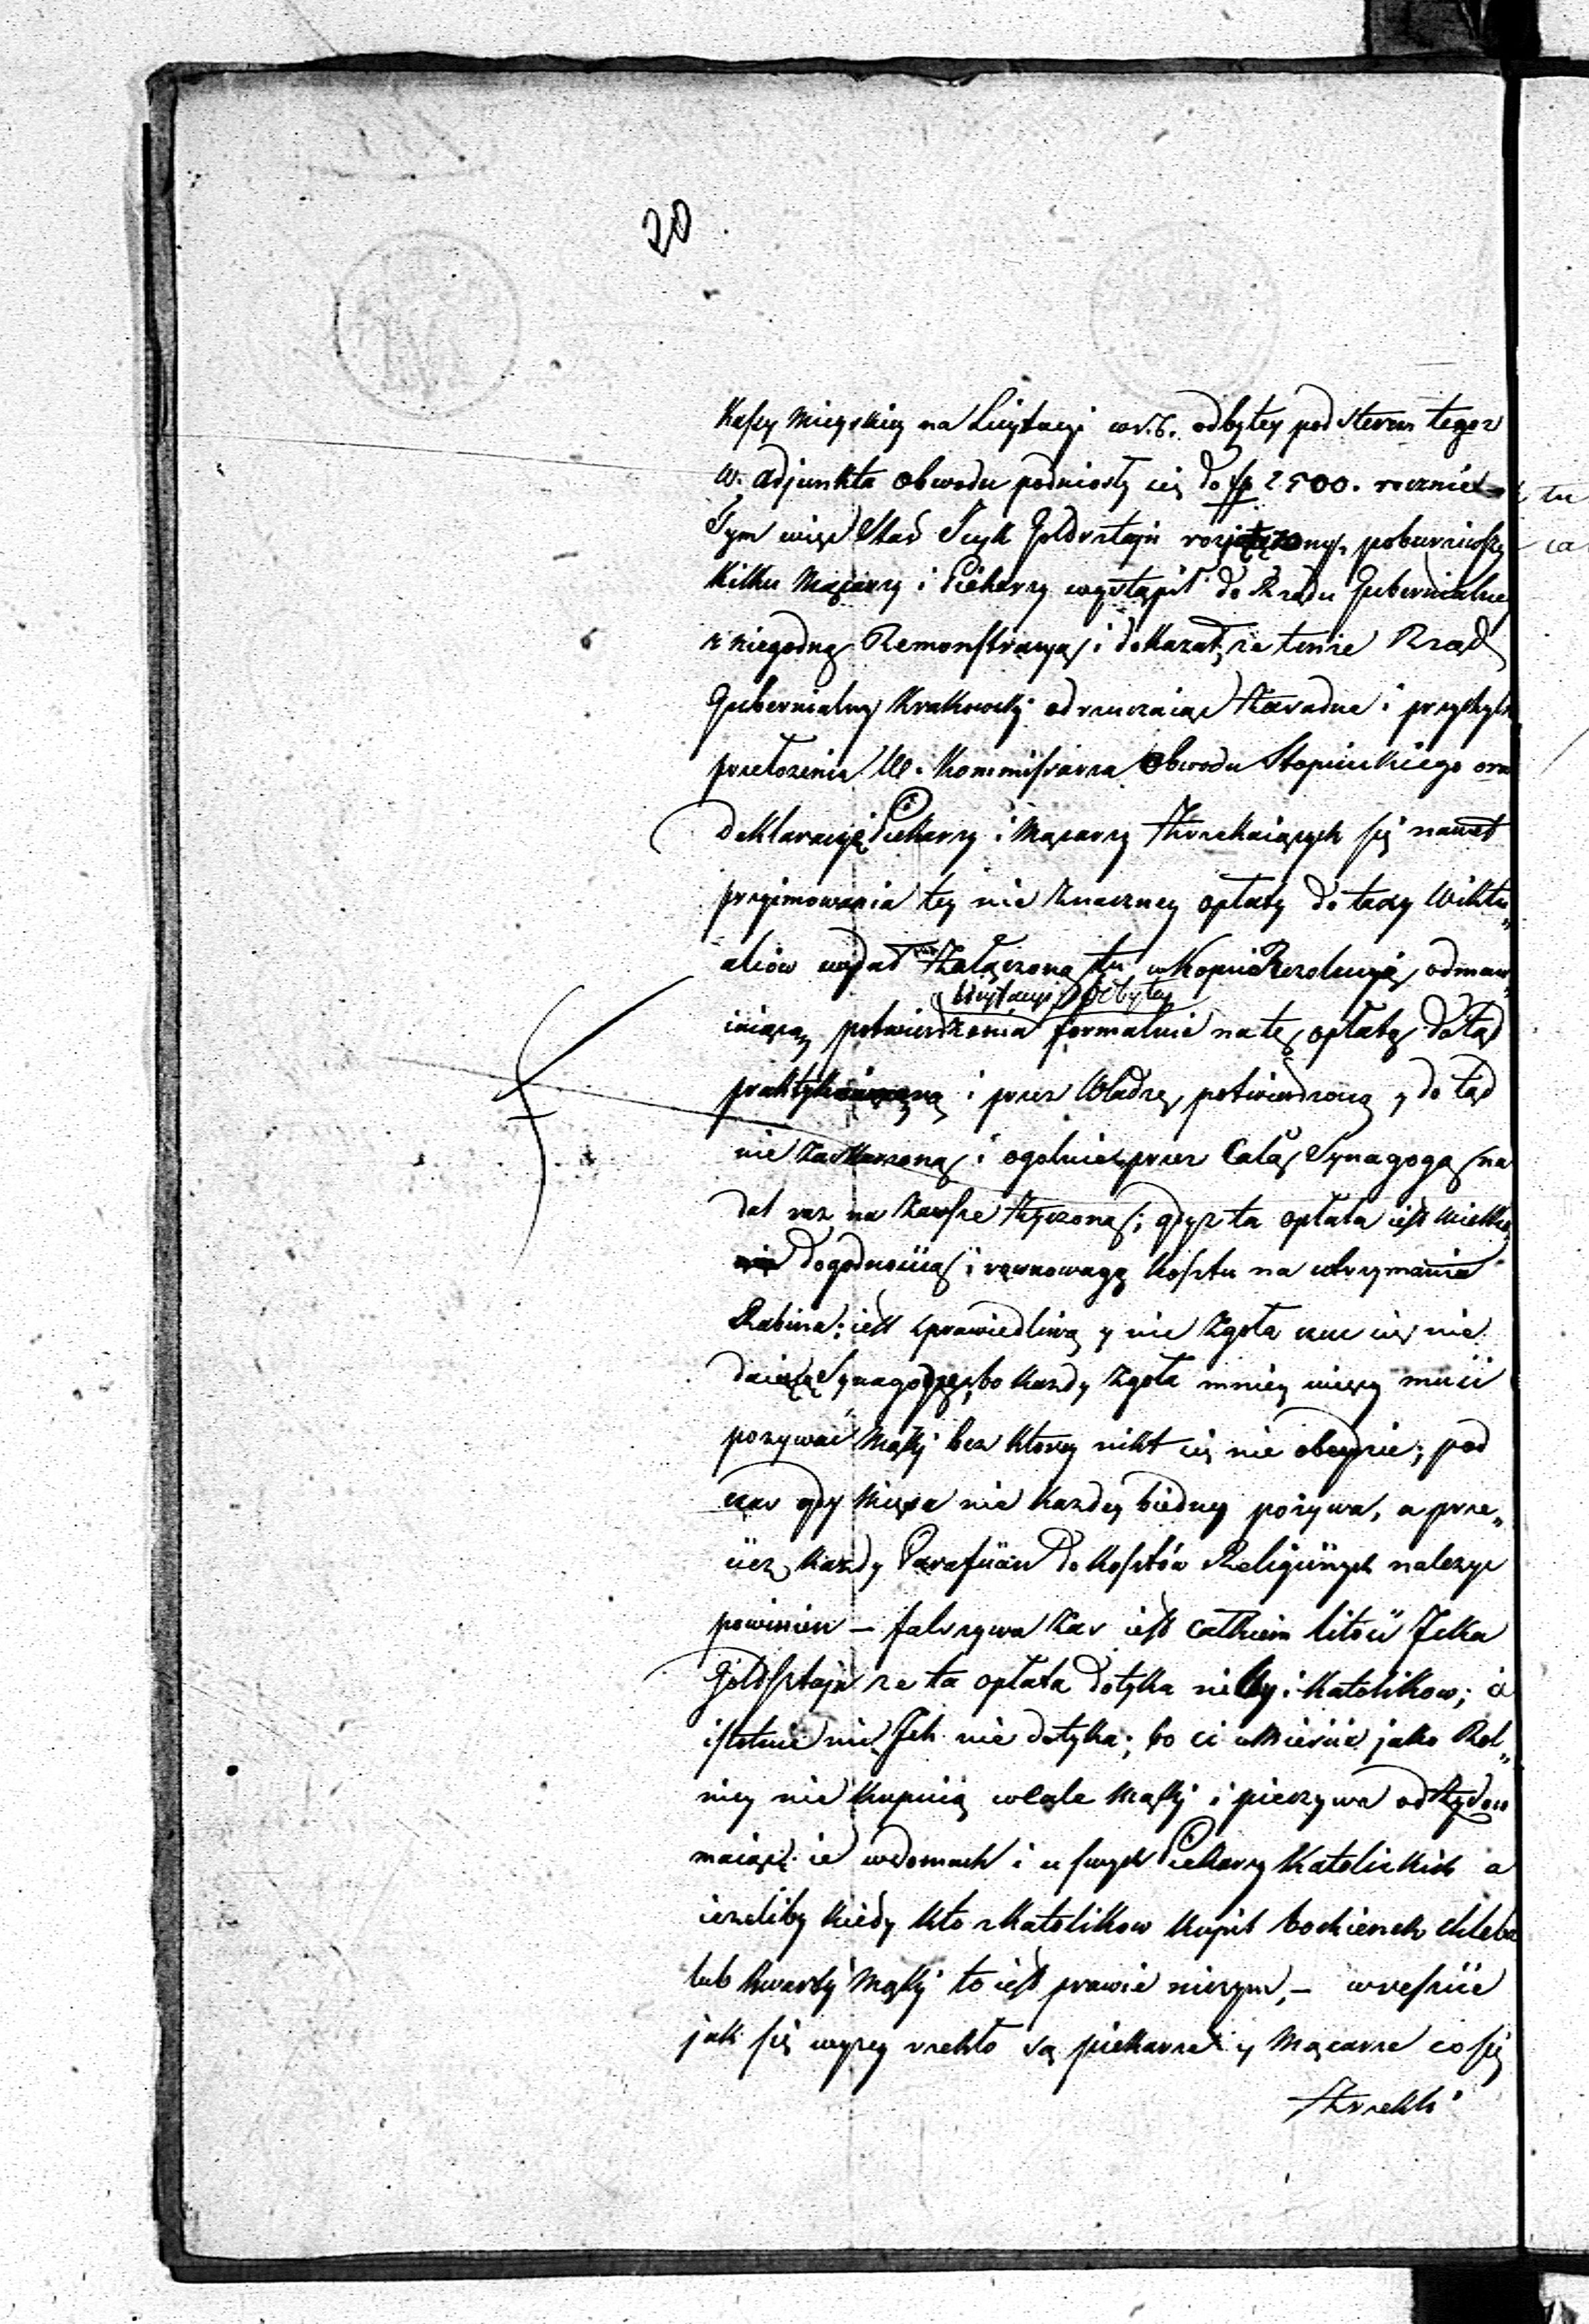 20
Kassy Mieyskiey na Licytacyi w r. b. odbytey pod sterem tegoz
W. Adjunkta Obwodu podniosły się do fp 2500. rocznie
Tym więc Stał Icyk Goldsztajn poburziwszy
kilku Mączarzy i Piekarzy wystąpił do Rządu Gubernialne
z niegodną Remonstracyą i dokazał, że tenże Rząd
Gubernialny Krakowski odrzucaiąc i przychylne
przełożenia W. Kommissarza Obwodu Stopnickiego oraz
deklaracyię Piekarzy i Mączarzy Zrzekaiących się nawet
przyimowania tey nie znaczney opłaty do taxy Wiktu„
ałów wydał Załączoną tu w Kopii Rezolucyię, odmaw„
Licytacyi odbytey
iaiącą potwierdzenia formalnie na tę opłatę dotąd
i przez Władzę potwierdzoną y do tąd
nie zaskarzoną i ogolnie przez Całą Synagogę na
dal raz na zawsze życzoną; gdyz ta opłata iest wielką
dogodnością i rownowagą kosztu na utrzymanie
Rabina; iest sprawiedliwą y nie zgoła czuć się nie
daiącą Synagodze, bo każdy zgoła mniey więcey musi
pozywać Mąki bez ktorey nikt się nie obeydzie; pod
czas gdy Mięsa nie każdy biedny pożywa, a prze„
cież każdy Parafiian do kosztów Religiinych należyć
powinien – falszywa zaś iest całkiem litość Icka
Goldsztajn że ta opłata dotyka niby i Katolikow; a
istotnie nic Ich nie dotyka; bo ci w Mieście jako Rol„
nicy nie kupuią wcale Mąki i pieczywa od Żydow
maiąc ie w domach i u swych Piekarzy Katolickich a
iezeliby kiedy kto z Katolikow kupił bochenek chleba
lub kwartę Mąki to iest prawie niczym, – w reszcie
jak się wyzey rzekło są piekarze y Mączarze co się
Zrzekli